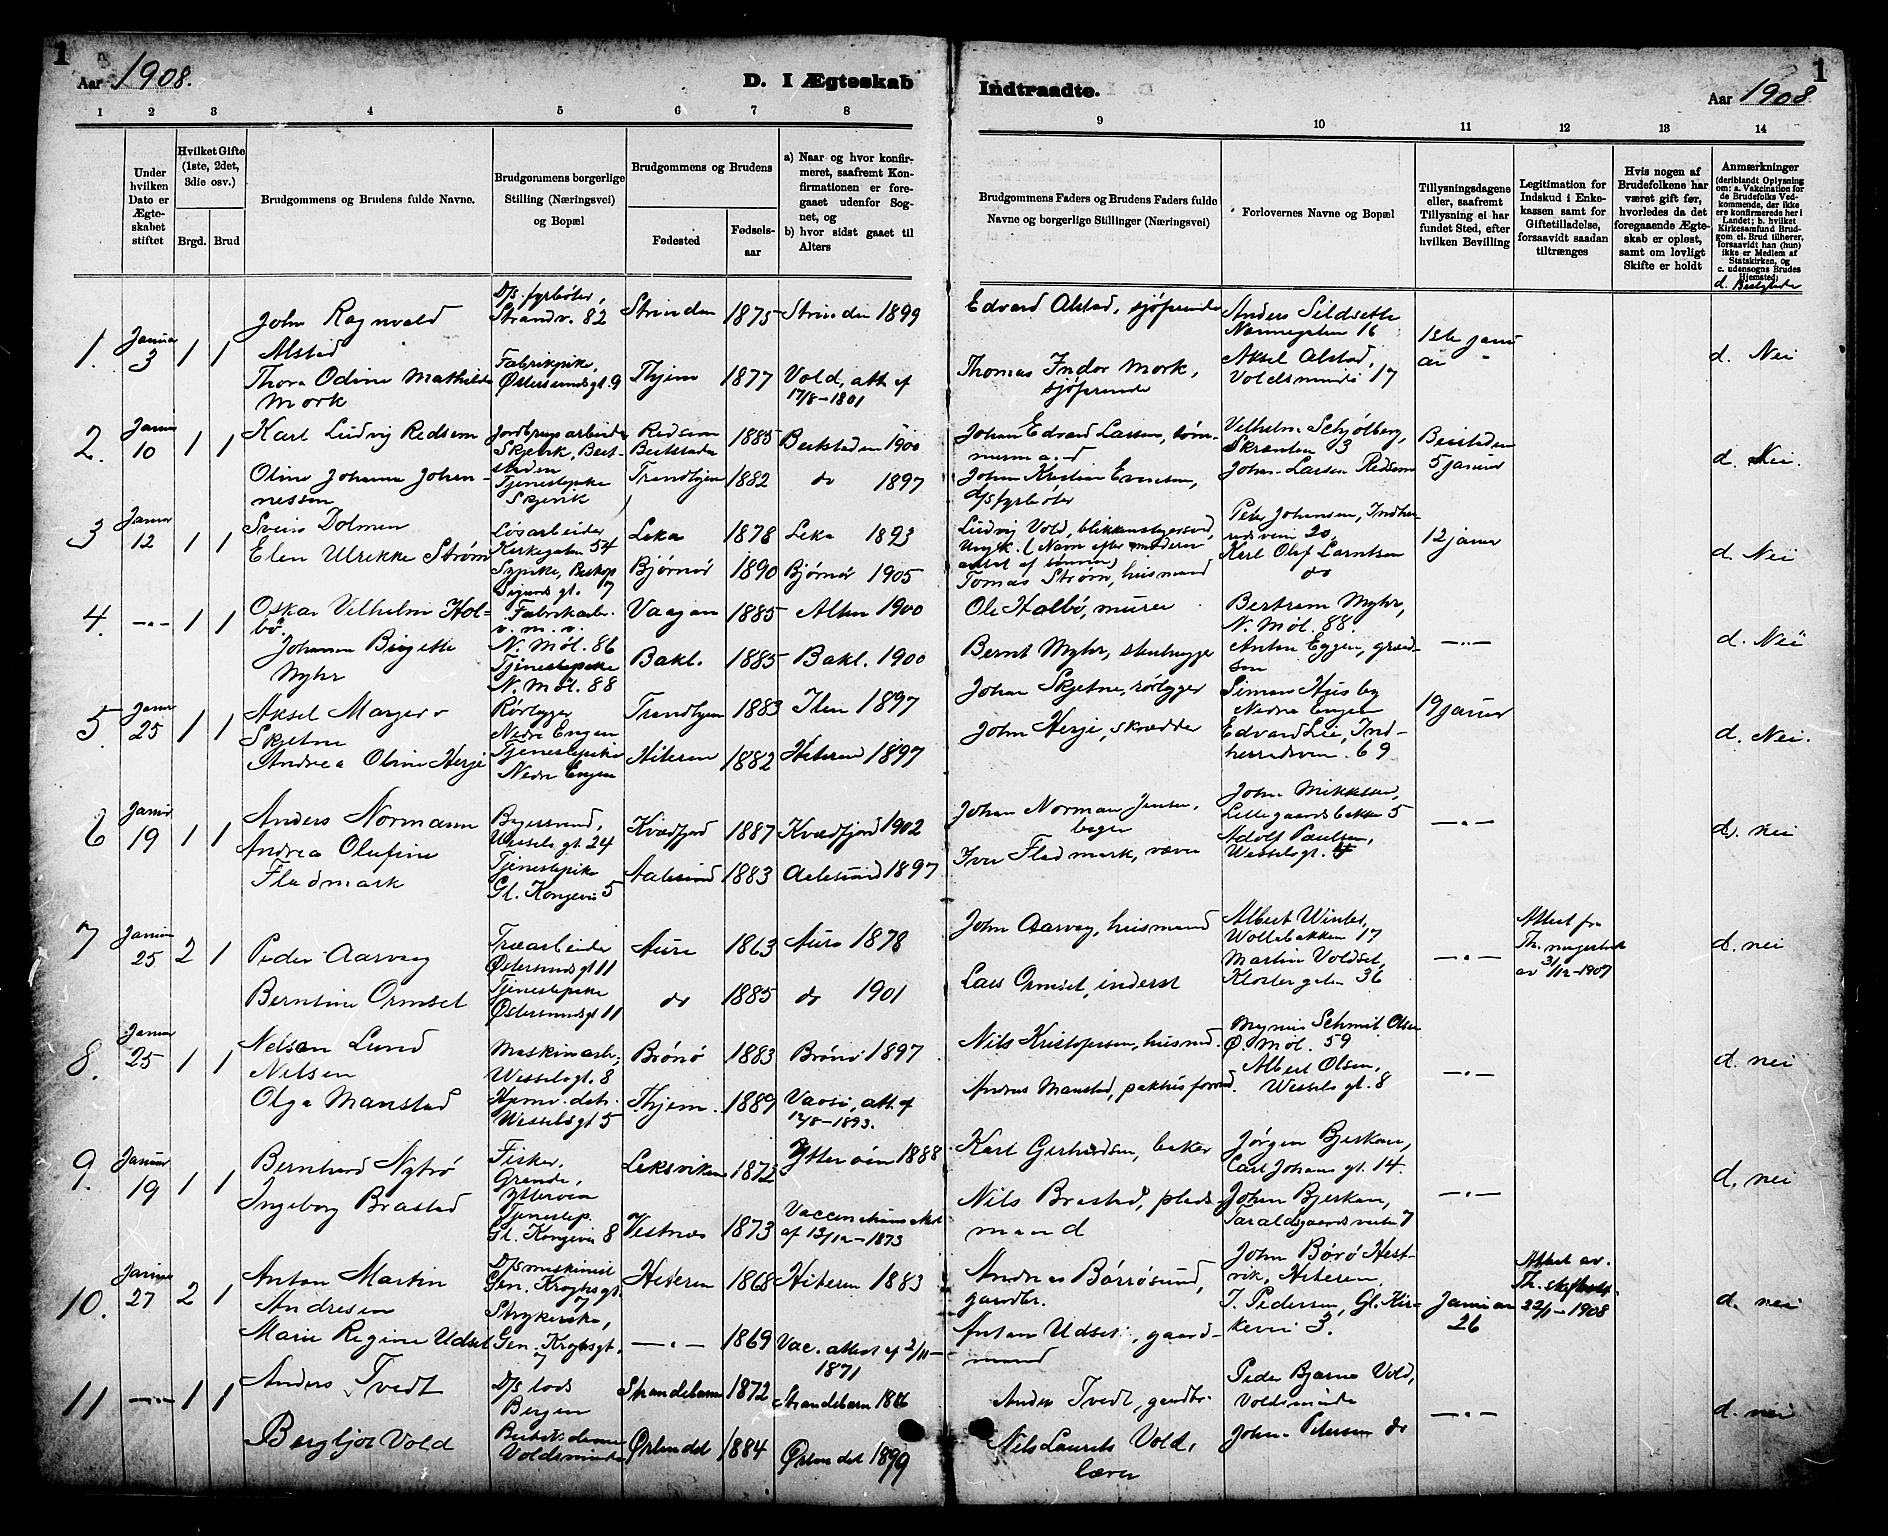 1
Aar 1908.
D. I Ægteskab
Indtraadte.
Aar 1908
1
1 2 3 4 5 6 7 8 9 10 11 12 13 14
Under hvilken Dato er Ægteskabet stiftet
Hvilket Gifte (1ste, 2det, 3die osv.)
Brgd. Brud
Brudgommens og Brudens fulde Navne.
Brudgommens borgerlige Stilling (Næringsvei) og Bopæl
Brudgommens og Brudens
Fødested
Fødselsaar
a) Naar og hvor konfirmeret, saafremt Konfirmationen er foregaaet udenfor Sognet, og
b) hvor sidst gaaet til Alters
Brudgommens Faders og Brudens Faders fulde Navne og borgerlige Stillinger (Næringsvei)
Forlovernes Navne og Bopæl
Tillysningsdagene eller, saafremt Tillysning ei har fundet Sted, efter hvilken Bevilling
Legitimation for Indskud i Enkekassen samt for Giftetilladelse, forsaavidt saadan tiltrænges
Hvis nogen af Brudefolkene har været gift før, hvorledes da det foregaaende Ægteskab er opløst, samt om lovligt Skifte er holdt
Anmærkninger
(deriblandt Oplysning om: a. Vakcination for de Brudefolks Vedkommende, der ikke ere konfirmerede her i Landet; b. hvilket Kirkesamfund Brudgom el. Brud tilhører, forsaavidt han (hun) ikke er Medlem af Statskirken, og c. udensogns Brudes Hjemsted;
1. Januar 3 1 1
John Ragnvald Alstad
D/s. fyrbøter, Strandv. 82
Strinden 1875 Strinden 1899
Edvard Alstad, sjøfarende
Anders Sildseth
16
1ste januar
d. Nei
Thora Odine Mathilde Mork
Fabrikpike, Østersundsgt 9
Thjem 1877 Vold, att. af 17/8-1801
Thomas Indor Mork, sjøfarende
Aksel Alstad, Voldsminde 17
2. Januar 10 1 1
Karl Ludvig Redsem
Jordbrugsarbeider Skjevik, Beitstaden
Redsem Beitstaden 1885 Beitstaden 1900
Johan Edvard Larsen, tømmermand
Vilhelm Schjølberg, Skrænten 3
Beitstaden 5 januar
d. Nei.
Oline Johanna Johannessen
Tjenestepike Skjevik
Trondhjem 1882 do 1897
Johan Kristian Evensen, d/s fyrbøter
John Larsen Redsem
3 Januar 12 1 1
Svein Dolmen
Løsarbeider Kirkegaten 54
Leka 1878 Leka 1893
Ludvig Vold, blikkenslagersvend, (Navn efter moderen antat af sønnen)
Peter Johansen, Indherredsveien 20,
12 januar
d. Nei
Elen Ulrikke Strøm
Sypike, Biskop Sigurds gt. 7
Bjørnør 1890 Bjørnør 1905
Tomas Strøm, husmand
Karl Olof Larntsen do
4. —"— 1 1
Oskar Vilhelm Holbø.
Fabrikarb. N. Møl. 86
Vaagan 1885 Alten 1900
Ole Holbø, murer
Bertram Myhr, N. Møl. 88
—"—
d. Nei
Johanna Birgitte Myhr
Tjenestepike N. Møl. 88
Bakl. 1885 Bakl. 1900
Bernt Myhr, stenhugger
Anton Eggen,
5. Januar 25 1 1
Aksel Margero Skjetne
Rørlegger Nedre Engen
Trondhjem 1883 Ilen 1897
Johan Skjetne, rørlegger
Simon Husby Nedre Engen
19 januar
d. Nei.
Andrea Oline Herje
Tjenestepike Nedre Engen
Hiteren 1882 Hiteren 1897
John Herje, skrædder
Edvard Lie, Indherredsveien. 69
6 Januar 19 1 1
Anders Normann
Bagersvend, Wessels gt. 24
Kvædfjord 1887 Kvædfjord 1902
Johan Norman Jensen, bager
John Mikkelsen, Lillegaardsbakken 5
—"—
d. nei
Andrea Olufine Fladmark
Tjenestepike Gl. Kongevei 5
Aalesund 1883 Aalesund 1897
Iver Fladmark, væver
Adolf Paulsen, Wesselsgt.
7 Januar 25 2 1
Peder Aarvag
Træarbeider Østersundsgt 11
Aure 1863 Aure 1878
John Aarvag, husmand
Albert Winter, Wollabakken 17
—"—
Attest fra Th. magistrat av 31/12-1907
d. nei
Berntine Ormset
Tjenestepike Østersundsgt 11
do 1885 do 1901
Lars Ormset, inderst
Martin Voldset, Klostergaten 36
8. Januar 25 1 1
Nelson Lund Nilsen
Maskinarb., Wesselsgt. 8
Brønø 1883 Brønø 1897
Nils Kristofersen, husmd.
Magnus Schmit Olsen Ø. Møl. 59
—"—
d. nei
Olga Manstad
Wesselsgt 5
Thjem. 1889 att. af 12/8-1893.
Andreas Manstad, pakhusformd.
Albert Olsen, Wessels gt. 8
9. Januar 19 1 1
Bernhard Nybrø
Fisker, Grande, Ytterøen
Leksviken 1872 Ytterøen 1888
Karl Gerhardsen, baker
Jørgen Bjerkan, Carl Johans gt. 14.
—"—
d. nei
Ingeborg Brastad
Tjenestep. Gl. Kongevei 8
Vestnes 1873 Vaccinations Attest af 13/12-1873
Nils Brastad, pladsmand
Johan Bjerkan, Taraldsgaardsveiten 7
10. Januar 27 2 1
Anton Martin Andresen
D/s maskinist Gen. Kroghsgt. 7
Hiteren 1868 Hiteren 1883
Andreas Børrøsund, gaardbr.
John Børø Hestvik, Hiteren
Januar 26
Attest av. Th. skifteret. 22/1-1908
d. nei
Marie Regine Udset
Strykerske, Gen. Kroghsgt. 7
—"— 1869 Vac. attest af 2/11-1871
Antan Udset, gaardmand
J. Pedersen, Gl. Kirkevei 3.
11 —"— 1 1
Anders Tvedt
D/s lods Bergen
Strandebarm 1872 Strandebarm 1886
Anders Tvedt, gaardbr.
Peder Bjarne Vold, Voldsminde
—"—
d. nei
Bergljot Vold
Voldsminde
Ørlandet 1884 Ørlandet 1899
Nils Laurits Vold, lærer
John Petersen do